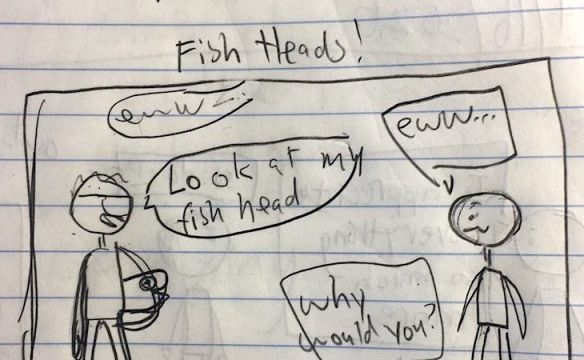 Fish Heads!
eww...
eww...
Look at my
fish head
why
would you?